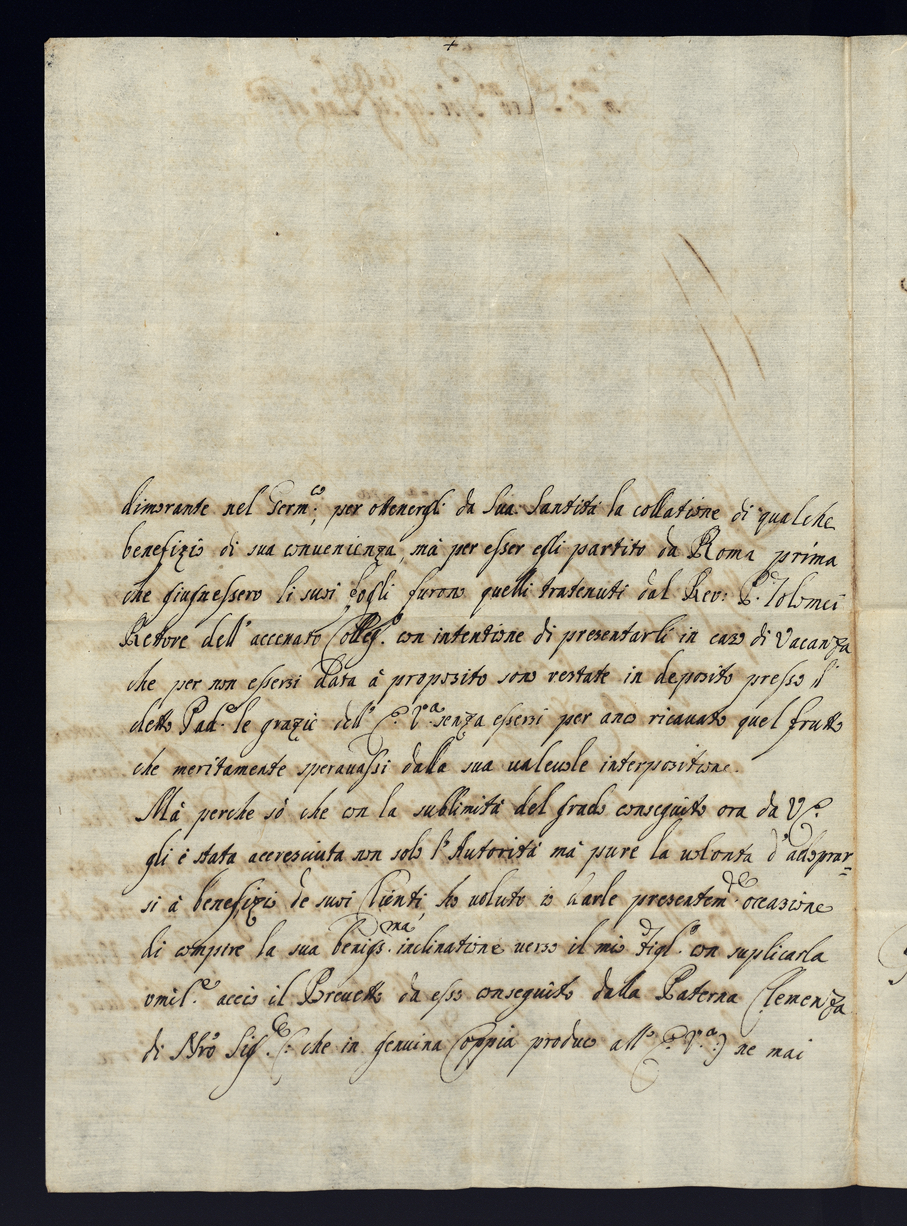 dimorante nel Germ:co, per ottenergli da Sua Santità la collatione di qualche
benefizio di sua convenienza, mà per esser egli partito da Roma prima
che giugnessero li suoi fogli furono quelli tratenuti dal Rev: P.re Tolomei
Retore dell' accenato Colleg.o con intentione di presentarli in caso di Vacanza
che per non essersi data à proposito sono restate in deposito presso il
detto Pad.e le grazie dell' E. V.a senza essersi per anco ricavato quel frutto
che meritamente speravassi dalla sua valevole interpositione.
Mà perche sò che con la sublimità del grado conseguito ora da V. E.
gli è stata accresciuta non solo l'Autorità mà pure la volontà d'adoprar=
si à benefizio de suoi Clienti, ho voluto io darle presentem.te occasione
di compire la sua beniss.ma inclinatione verso il mio Figl.o con suplicarla
umil.e accio il Brevetto da esso conseguito dalla Paterna Clemenza
di Nro Sig.re (: che in genuina Coppia produco all' E. V.a :) ne mai